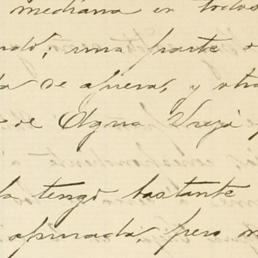 mediana en todos
una parte
de afuera, y otra
de Agua Vieja
la tengo bastante
apurada, pero